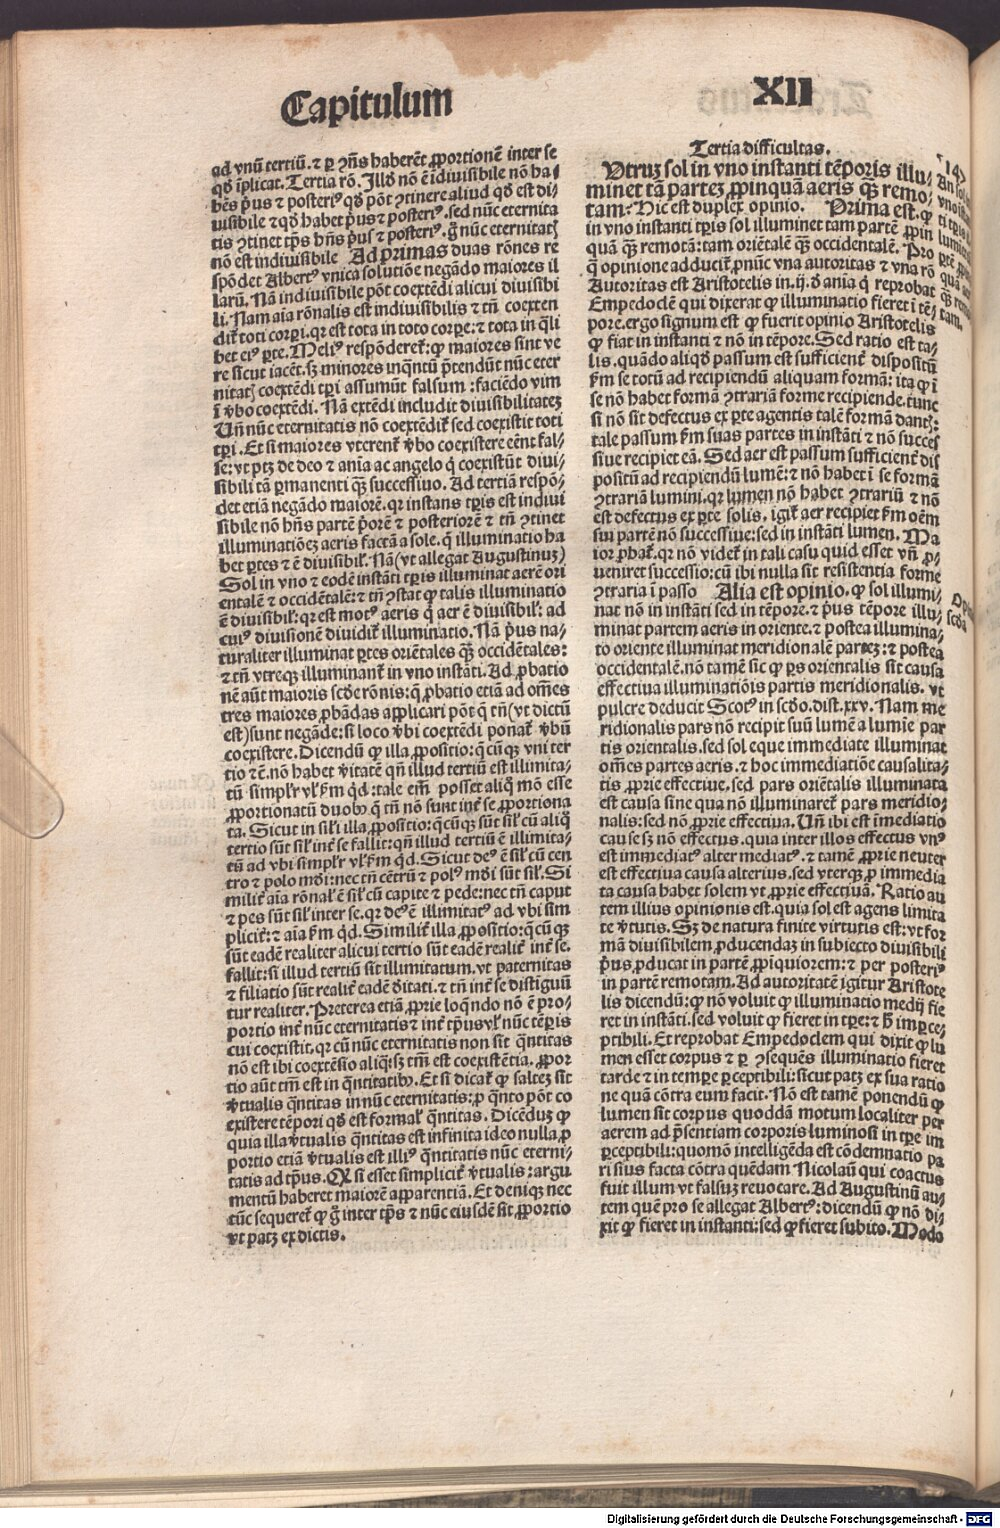 Capitulum
XII
ad vnū tertiū. ⁊ ꝑ ꝯn̄s haberēt ꝓportionē inter se
qḋ īplicat. Tertia rō. Illḋ nō ē īdiuisibile nō ha⸗
bēs p̄us ⁊ posteriꝰ qḋ pōt ꝯtinere aliud qḋ est di⸗
uisibile ⁊ qḋ habet p̄us ⁊ posteriꝰ. sed nūc eternita
tis ꝯtinet tp̄s hn̄s p̄us ⁊ posteriꝰ. g̊ nūc eternitatꝭ
nō est indiuisibile Ad primas duas rōnes re
spōdet Albertꝰ vnica solutiōe negādo maiores il
larū. Nā indiuisibile pōt coextēdi alicui diuisibi
li. Nam aīa rōnalis est indiuisibilis ⁊ tn̄ coexten
dit᷑ toti corꝑi. qꝛ est tota in toto corꝑe: ⁊ tota in q̄li
bet eiꝰ ꝑte. Meliꝰ respōderet᷑: ꝙ maiores sint ve
re sicut iacēt. sꝫ minores inq̄ntū p̄tendūt nūc eter
nitatꝭ coextēdi tꝑi assumūt falsum: faciēdo vim
ī ꝟbo coextēdi. Nā extēdi includit diuisibilitateꝫ
Un̄ nūc eternitatis nō coextēdit᷑ sed coexistit toti
tꝑi. Et si maiores vterent᷑ ꝟbo coexistere eēnt fal⸗
se: vt ptꝫ de deo ⁊ anīa ac angelo q̇ coexistūt diui⸗
sibili tā ꝑmanenti q̄ꝫ successiuo. Ad tertiā respō⸗
det etiā negādo maiorē. qꝛ instans tꝑis est indiui
sibile nō hn̄s partē p̄orē ⁊ posteriorē ⁊ tn̄ ꝯtinet
illuminatiōeꝫ aeris factā a sole. q̄ illuminatio ha
bet ꝑtes ⁊ ē diuisibil᷑. Nā (vt allegat Augustinuꝫ)
Sol in vno ⁊ eodē instāti tꝑis illuminat aerē ori
entalē ⁊ occidētalē: ⁊ tn̄ ꝯstat ꝙ talis illuminatio
ē diuisibil᷑: qꝛ est motꝰ aeris q̇ aer ē diuisibil᷑: ad
cuiꝰ diuisionē diuidit᷑ illuminatio. Nā p̄us na⸗
turaliter illuminat ꝑtes oriētales q̄ꝫ occidētales:
⁊ tn̄ vtreqꝫ illuminant᷑ in vno instāti. Ad ꝓbatio
nē aūt maioris scḋe rōnis: q̄ ꝓbatio etiā ad om̄es
tres maiores ꝓbādas applicari pōt q̄ tn̄ (vt dictū
est) sunt negāde: si loco ꝟbi coextēdi ponat᷑ ꝟbū
coexistere. Dicendū ꝙ illa ꝓpositio: q̄cūqꝫ vni ter
tio ⁊cē. nō habet ꝟitatē qn̄ illud tertiū est illimita⸗
tū simpl᷑r vl᷑ ẜm qḋ: tale em̄ posset aliq̇ mō esse
ꝓportionatū duobꝰ q̄ tn̄ nō sunt int᷑ se ꝓportiona
ta. Sicut in sil᷑i illa ꝓpositio: q̄cūqꝫ sūt sil᷑ cū aliq̇
tertio sūt sil᷑ int᷑ se fallit: qn̄ illud tertiū ē illimita⸗
tū ad vbi simpl᷑r vl᷑ ẜm qḋ. Sicut deꝰ ē sil᷑ cū cen
tro ⁊ polo mūdi: nec tn̄ cētrū ⁊ polꝰ mūdi sūt sil᷑. Si
milit᷑ aīa rōnal᷑ ē sil᷑ cū capite ⁊ pede: nec tn̄ caput
⁊ pes sūt sil᷑ inter se. qꝛ deꝰ ē illimitatꝰ ad vbi sim
plicit᷑: ⁊ aīa ẜm qḋ. Similit᷑ illa ꝓpositio: q̄cū qꝫ
sūt eadē realiter alicui tertio sūt eadē realit᷑ int᷑ se.
fallit: si illud tertiū sit illimitatum. vt paternitas
⁊ filiatio sūt realit᷑ eadē ḋitati. ⁊ tn̄ int᷑ se distiguū
tur realiter. Preterea etiā ꝓprie loqn̄do nō ē pro⸗
portio int᷑ nūc eternitatis ⁊ int᷑ tp̄us vl᷑ nūc tēꝑis
cui coexistit. qꝛ cū nūc eternitatis non sit q̄ntitas
nō est ibi coextēsio aliq̄: sꝫ tm̄ est coexistētia. ꝓpor
tio aūt tm̄ est in q̄ntitatibꝰ. Et si dicat᷑ ꝙ salteꝫ sit
ꝟtualis q̄ntitas in nūc eternitatis: ꝓ q̄nto pōt co
existere tēpori qḋ est formal᷑ q̄ntitas. Dicēduꝫ ꝙ
quia illa ꝟtualis q̄ntitas est infinita ideo nulla ꝓ
portio etiā ꝟtualis est illiꝰ q̄ntitatis nūc eterni⸗
tatis ad tp̄us. Ꝙ si esset simplicit᷑ ꝟtualis: argu
mentū haberet maiorē apparentiā. Et deniqꝫ nec
tūc sequeret᷑ ꝙ g̊ inter tp̄s ⁊ nūc eiusdē sit ꝓportio
vt patꝫ ex dictis.
Tertia difficultas.
Utruꝫ sol in vno instanti tēporis illu⸗
minet tā parteꝫ ꝓpinquā aeris q̄ꝫ remo⸗
tam: Hic est duplex opinio. Prima est. ꝙ
in vno instanti tꝑis sol illuminet tam partē ꝓpin
quā q̄ꝫ remotā: tam oriētalē q̄ꝫ occidentalē. Pro
q̄ opinione adducit᷑ ꝓ nūc vna autoritas ⁊ vna rō
Autoritas est Aristotelis in. ij. ḋ ania q̇ reprobat
Empedoclē qui dixerat ꝙ illuminatio fieret ī tē⸗
pore. ergo signum est ꝙ fuerit opinio Aristotelis
ꝙ fiat in instanti ⁊ nō in tēpore. Sed ratio est ta⸗
lis. quādo aliqḋ passum est sufficient᷑ dispositū
ẜm se totū ad recipiendū aliquam formā: ita ꝙ ī
se nō habet formā ꝯtrariā forme recipiende. tunc
si nō sit defectus ex ꝑte agentis talē formā dantꝭ:
tale passum ẜm suas partes in instāti ⁊ nō succes
siue recipiet eā. Sed aer est passum sufficient᷑ dis
positū ad recipiendū lumē: ⁊ nō habet ī se formā
ꝯtrariā lumini. qꝛ lumen nō habet ꝯtrariū ⁊ nō
est defectus ex ꝑte solis. igit᷑ aer recipiet ẜm oēm
sui partē nō successiue: sed in instāti lumen. Ma
ior ꝓbat᷑. qꝛ nō videt᷑ in tali casu quid esset vn̄ ꝓ⸗
ueniret successio: cū ibi nulla sit resistentia forme
ꝯtraria ī passo Alia est opinio. ꝙ sol illumi⸗
nat nō in instāti sed in tēpore. ⁊ p̄us tēpore illu⸗
minat partem aeris in oriente. ⁊ postea illumina⸗
to oriente illuminat meridionalē parteꝫ: ⁊ postea
occidentalē. nō tamē sic ꝙ ꝑs orientalis sit causa
effectiua illuminatiōis partis meridionalis. vt
pulcre deducit Scotꝰ in scḋo. dist. xxv. Nam me
ridionalis pars nō recipit suū lumē a lumīe par
tis orientalis. sed sol eque immediate illuminat
om̄es partes aeris. ⁊ hoc immediatiōe causalita⸗
tis ꝓprie effectiue. sed pars oriētalis illuminata
est causa sine qua nō illuminaret᷑ pars meridio⸗
nalis: sed nō ꝓprie effectiua. Un̄ ibi est īmediatio
cause sꝫ nō effectus. quia inter illos effectus vnꝰ
est immediatꝰ alter mediatꝰ. ⁊ tamē ꝓprie neuter
est effectiua causa alterius. sed vterqꝫ ꝓ immedia
ta causa habet solem vt ꝓprie effectiuā. Ratio au
tem illius opinionis est. quia sol est agens limita
te ꝟtutis. Sꝫ de natura finite virtutis est: vt for
mā diuisibilem ꝓducendaꝫ in subiecto diuisibili
p̄us ꝓducat in partē ꝓpīquiorem: ⁊ per posteriꝰ
in partē remotam. Ad autoritatē igitur Aristote
lis dicendū: ꝙ nō voluit ꝙ illuminatio medij fie
ret in instāti. sed voluit ꝙ fieret in tꝑe: ⁊ ꝧ imꝑce⸗
ptibili. Et reprobat Empedoclem qui dixit ꝙ lu
men esset corpus ⁊ ꝑ ꝯsequēs illuminatio fieret
tarde ⁊ in tempe ꝑceptibili: sicut patꝫ ex sua ratio
ne quā cōtra eum facit. Nō est tamē ponendū ꝙ
lumen sit corpus quoddā motum localiter per
aerem ad p̄sentiam corporis luminosi in tꝑe im
ꝑceptibili: quomō intelligēda est cōdemnatio pa
risius facta cōtra quēdam Nicolaū qui coactus
fuit illum vt falsuꝫ reuocare. Ad Augustinū au⸗
tem quē pro se allegat Albertꝰ: dicendū ꝙ nō di⸗
xit ꝙ fieret in instanti: sed ꝙ fieret subito. Modo
Digitalisierung gefördert durch die Deutsche Forschungsgemeinschaft - DFG